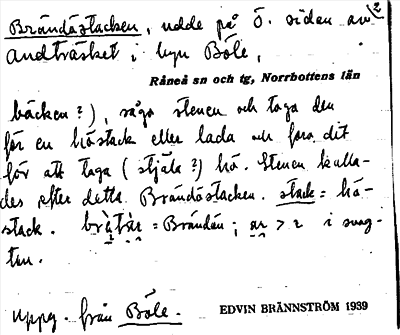 2
Brändåstacken, udde på Ö. sidan av
Andträsket i byn Böle,
Råneå sn och tg, Norrbottens län
bäcken?), sågo stenen och toga den
för en höstack eller lada och foro dit
för att taga (stjäla?) hö. Stenen kalla-
des efter detta Brändåstacken. stack = hö-
stack. = Brändån; i svag-
ton.
Uppg. från Böle.
EDVIN BRÄNNSTRÖM 1939